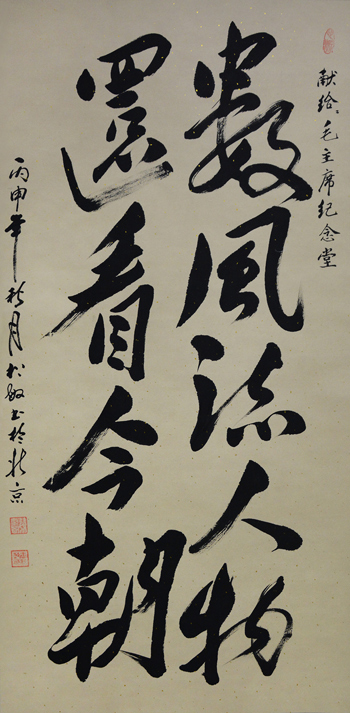 献给、毛主席纪念堂
數風流人物
還看今朝
丙申年秋月 敏书於北京